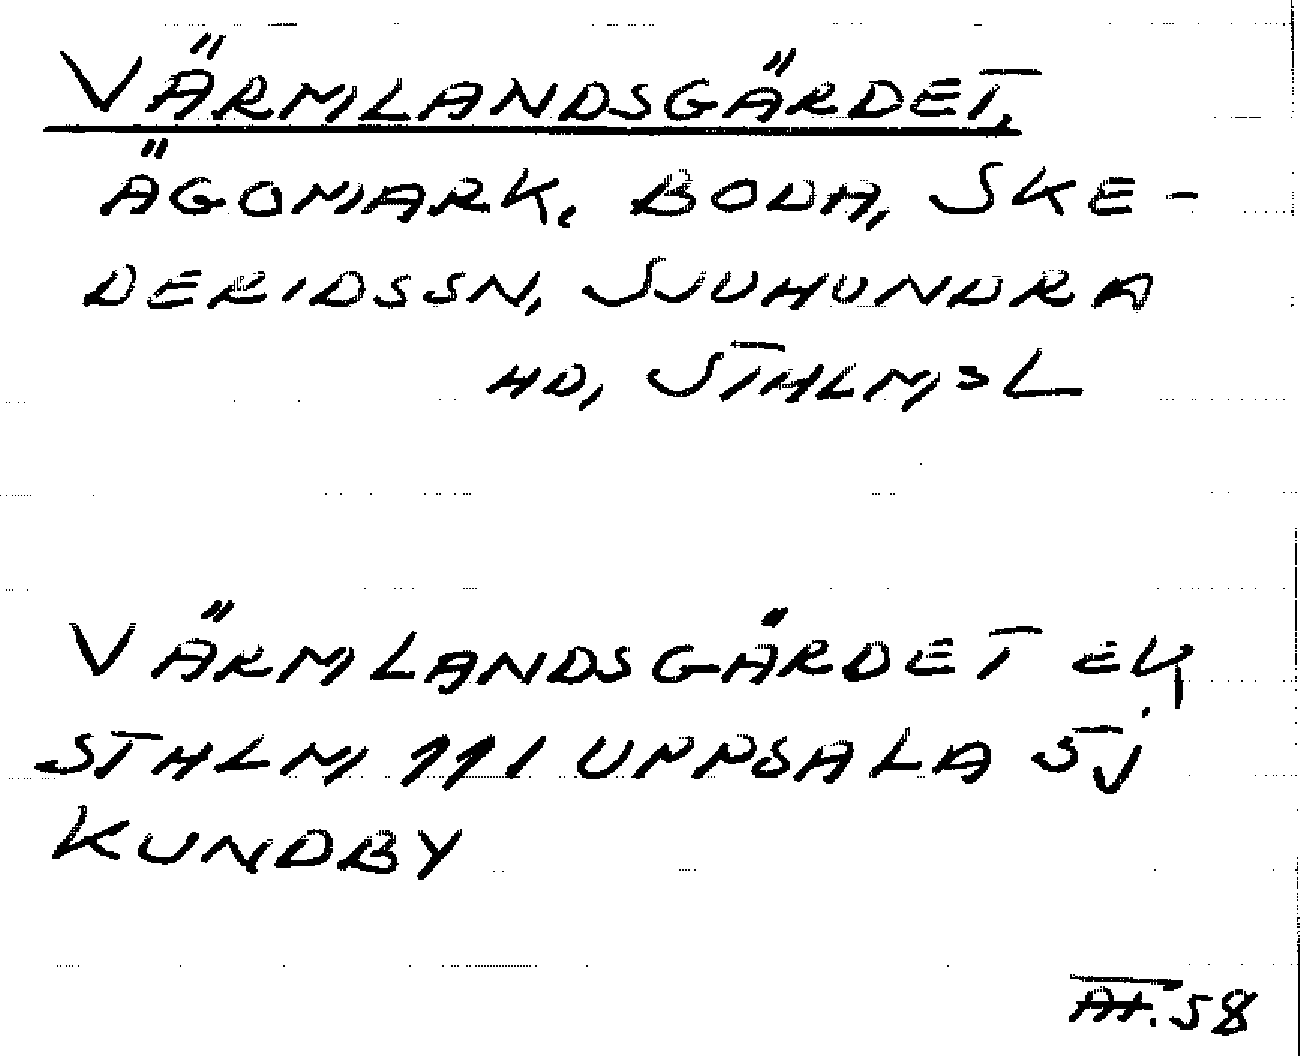 VÄRMLANDSGÄRDET,
ÄGOMARK, BODA, SKE-
DERIDSSN, SJUHUNDRA
HD, STHLM,S L
VÄRMLANDSGÄRDET EK
STHLM 111 UPPSALA 5J
KUNDBY
58